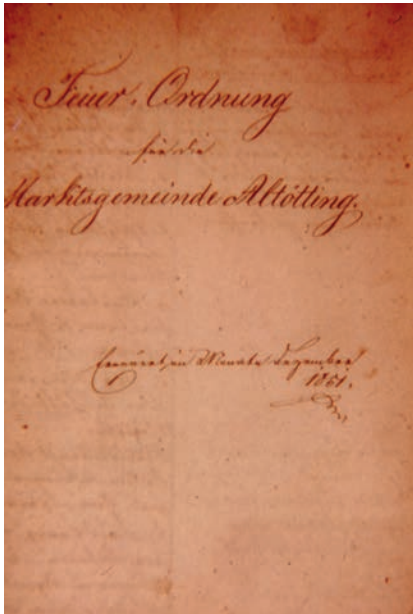 Feuer-Ordnung
für die
Marktsgemeinde Altötting.
im Monate Dezember
1861.